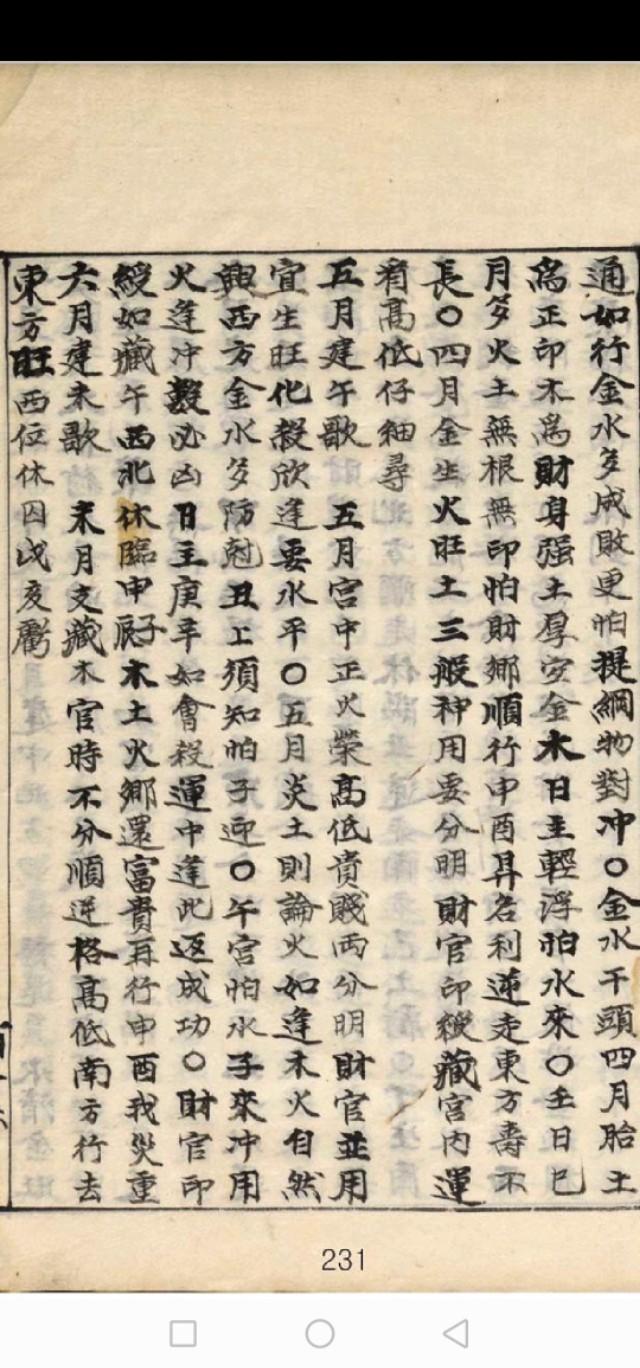 通如行金水多成敗更怕提綱物對冲〇金水干頭四月胎土
爲正印木爲財身强土厚安金木日主輕浮怕水來〇壬日巳
月多火土無根無印怕財鄉順行申酉昇名利逆走東方壽不
長〇四月金生火旺土三般神用要分明財官印綬藏宮内運
有高低仔細尋
五月建午歌 五月宮中正火榮高低貴賤両分明財官並用
宜生旺化殺欣逢要水平〇五月炎土則論火如逢木火自然
興西方金水多防尅丑上須知怕子迎〇午宮怕水子來冲用
火逢冲數必凶日主庚辛如會殺運中逢此返成功〇財官印
綬如藏午西北休臨申子辰木土火鄉還富貴再行申酉我災重
六月建未歌 未月支藏木官時不分順逆格高低南方行去
東方旺西位休囚戌亥虧
231